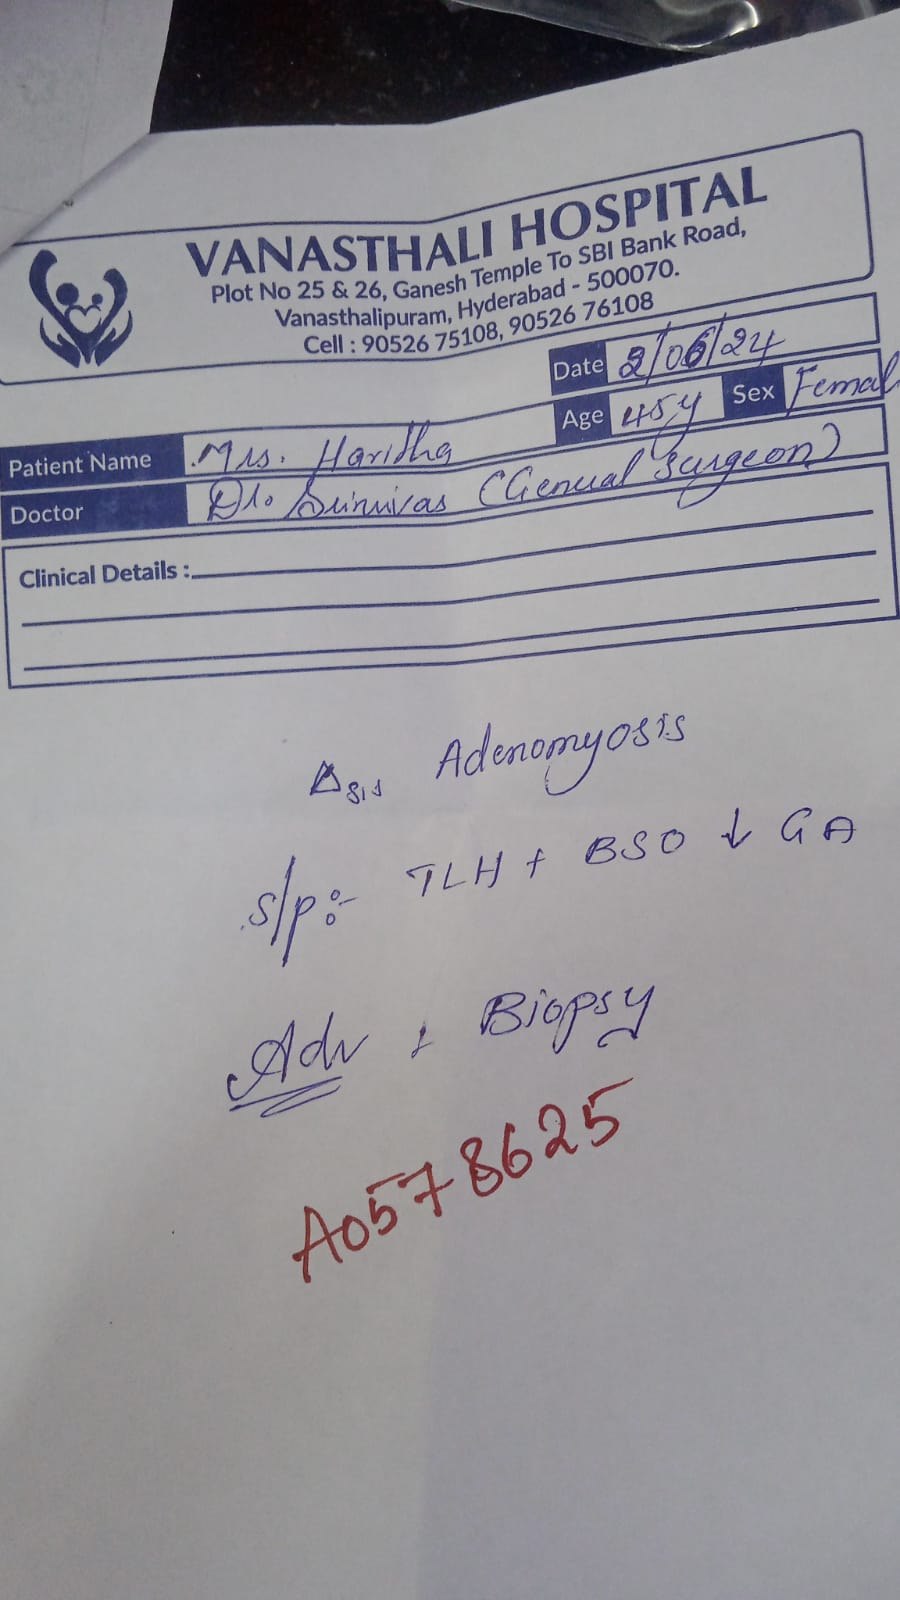 VANASTHALI HOSPITAL
Plot No 25 & 26, Ganesh Temple To SBI Bank Road,
Vanasthalipuram, Hyderabad - 500070.
Cell : 90526 75108, 90526 76108
Date 2/06/24
Age 45y Sex Femal
Patient Name Mrs. Haritha
Doctor Dr. Srinivas (General Surgeon)
Clinical Details :
Δsis Adenomyosis
s/p:- TLH + BSO ↓ GA
Adv : Biopsy
A0578625